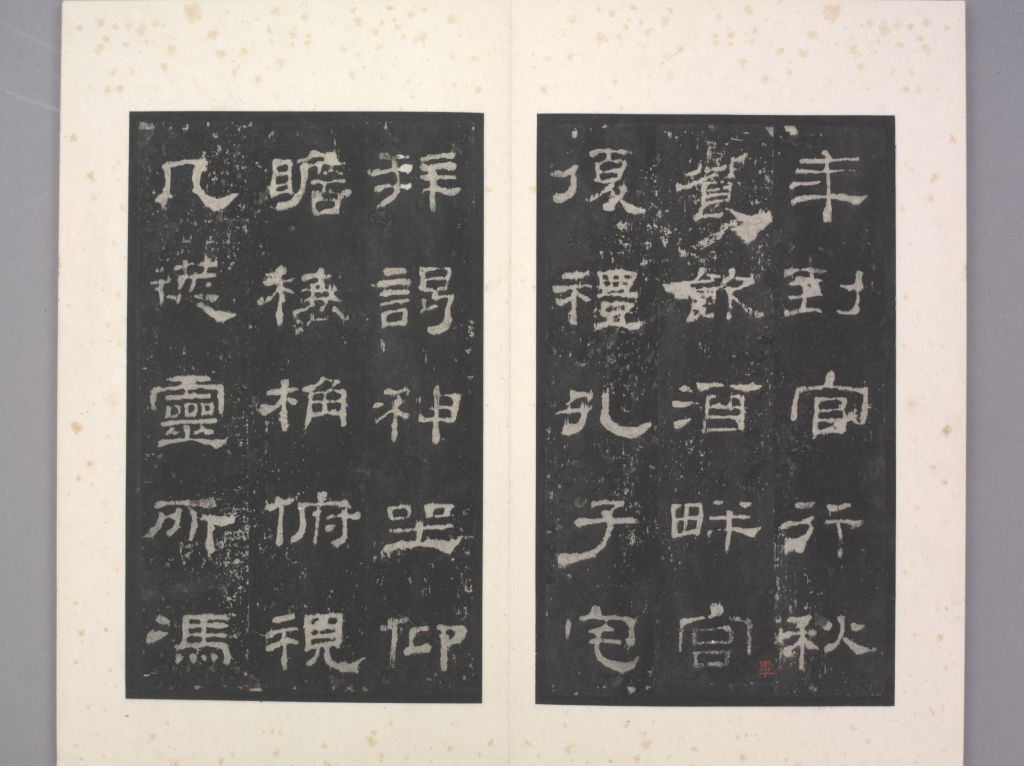 年到官行秋
饗飲酒畔宮
畢
復禮孔子宅
拜謁神坐仰
瞻榱桷俯視
几筵靈所馮